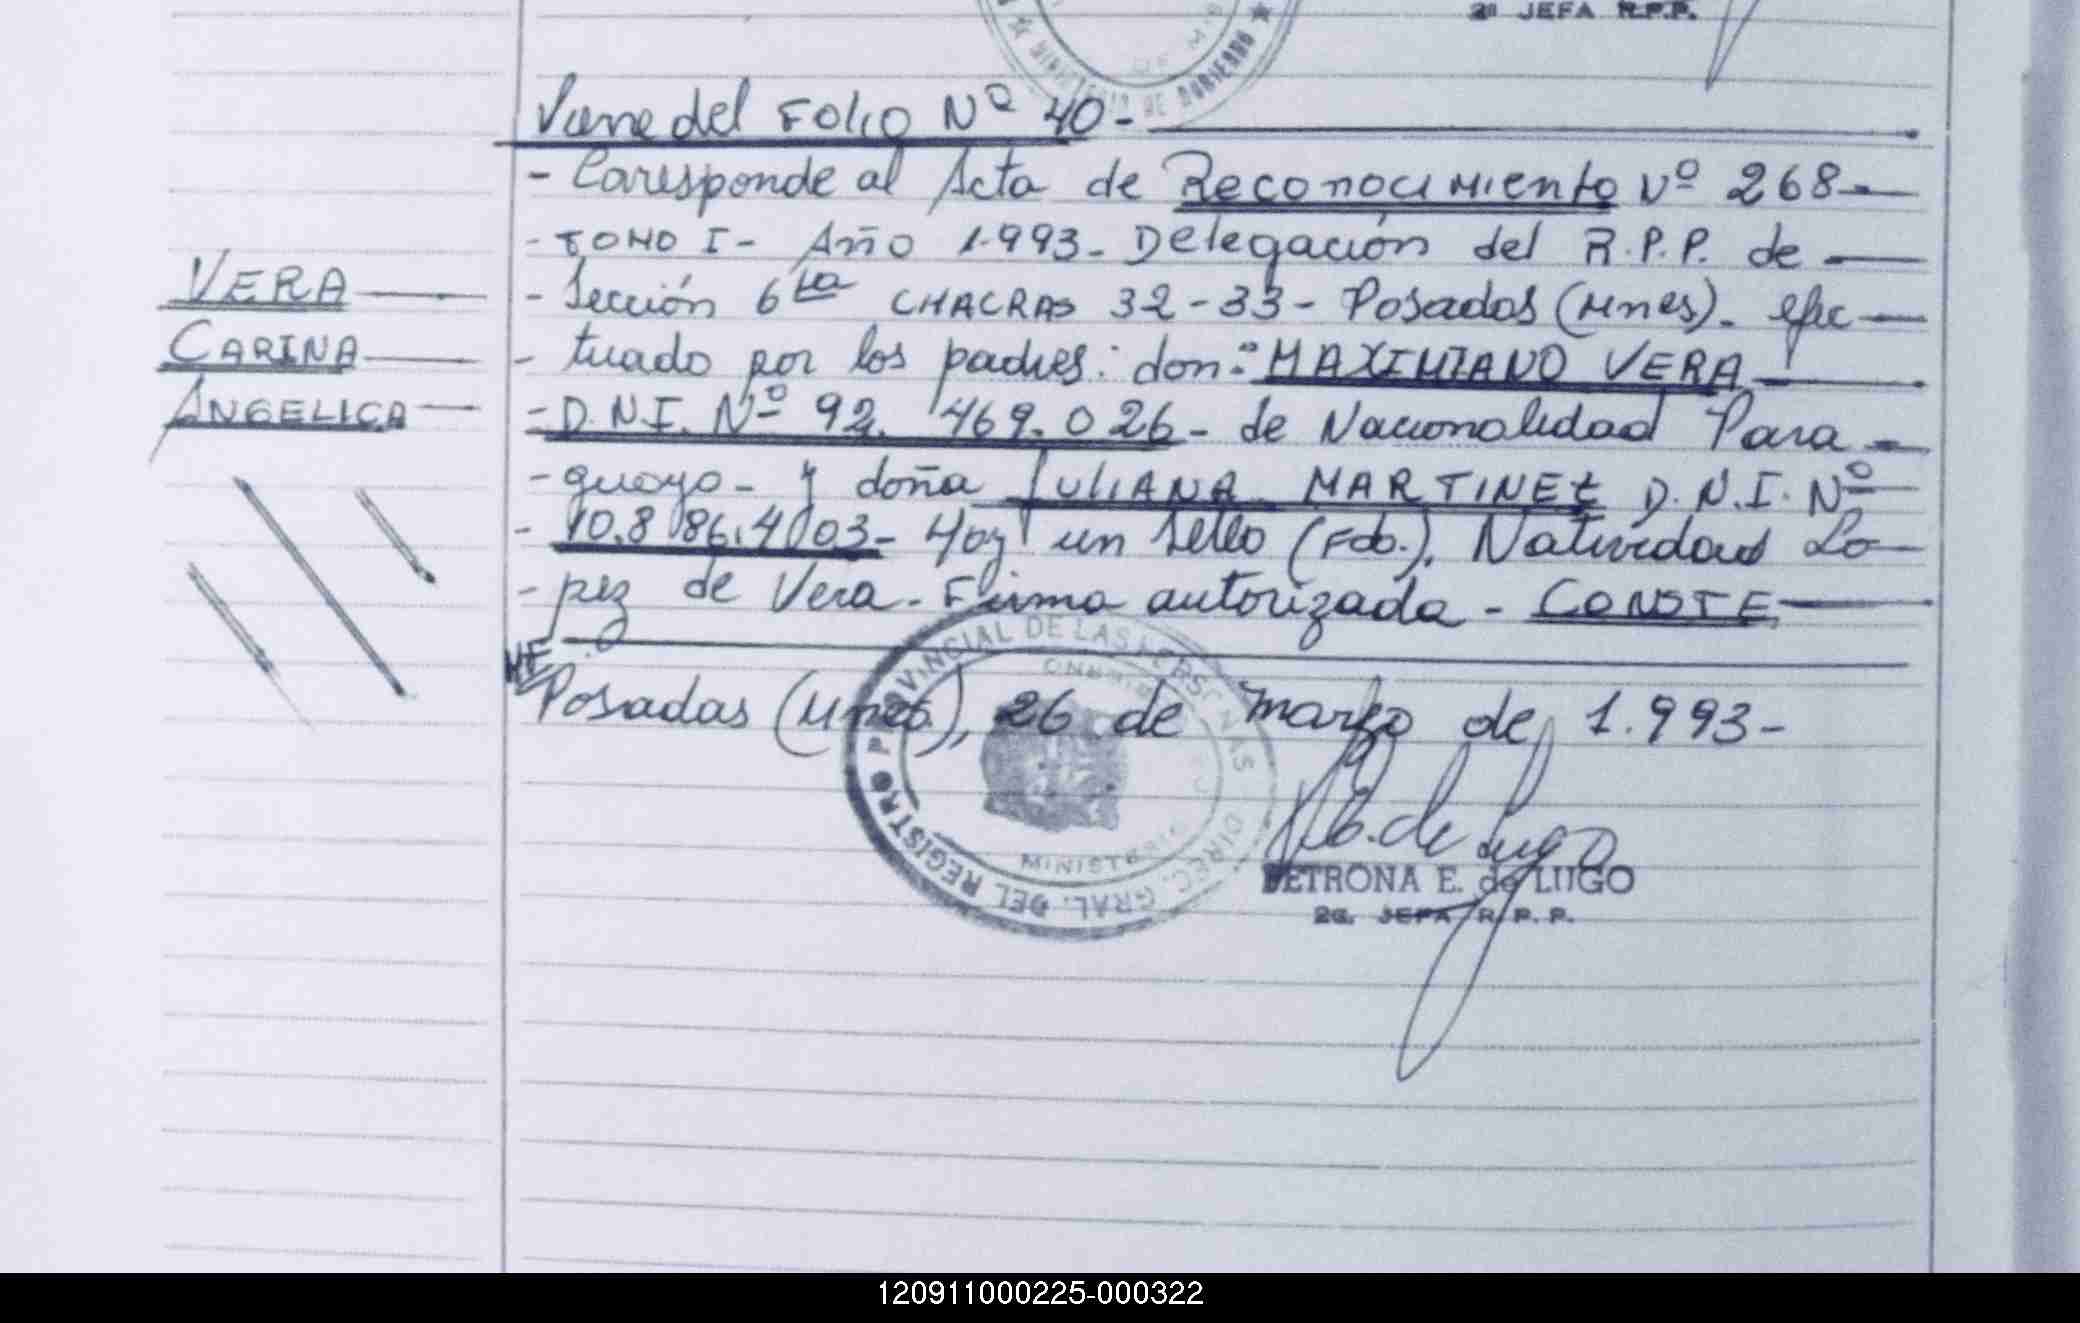 2ª JEFA R.P.P.
MINISTERIO DE GOBIERNO
Viene del Folio Nº 40-
- Coresponde al Acta de Reconocimiento Nº 268-
- TOMO I- Año 1.993- Delegación del R.P.P. de
VERA
- Sección 6ta CHACRAS 32-33- Posadas (Mnes)- efec
CARINA
- tuado por los padres: don: MAXIMIANO VERA
ANGELICA
- D.N.I. Nº 92.469.026- de Nacionalidad Para
- guayo- y doña JULIANA MARTINEZ D.N.I. Nº
- 10.886.403- Hay un sello (Fdo.). Natividad Lo
- pez de Vera- Firma autorizada- CONSTE
Posadas (Mnes), 26 de marzo de 1.993-
DIREC. GRAL. DEL REGISTRO PROVINCIAL DE LAS PERSONAS
MINISTERIO
PETRONA E. de LUGO
2a. JEFA R.P.P.
120911000225-000322